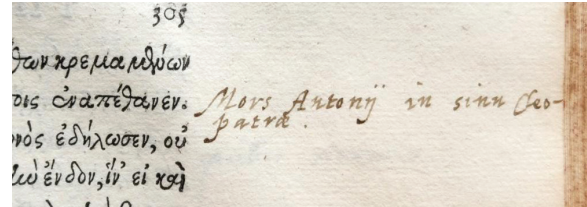 305
θων κρεμαμθύων
τοις ἐναπέθανεν.
νὸς ἐδήλωσεν, οὐ
ἔνδον, ἵν' εἰ καὶ
Mors Antonij in sinu Cleo-
patræ.